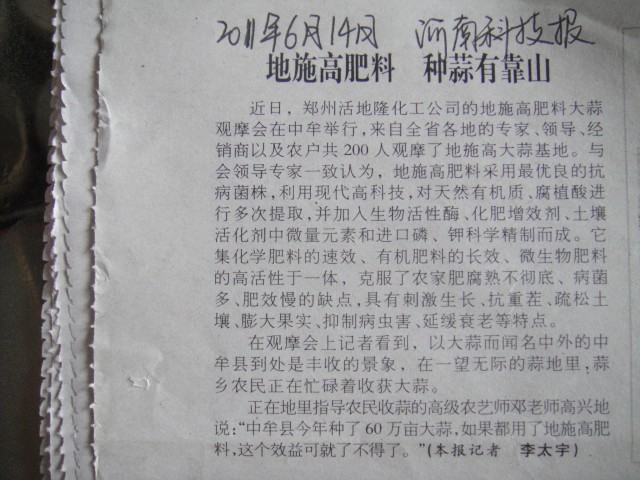 2011年6月14日 河南科技报
地施高肥料 种蒜有靠山
近日，郑州活地隆化工公司的地施高肥料大蒜
观摩会在中牟举行，来自全省各地的专家、领导、经
销商以及农户共 200 人观摩了地施高大蒜基地。与
会领导专家一致认为，地施高肥料采用最优良的抗
病菌株，利用现代高科技，对天然有机质、腐植酸进
行多次提取，并加入生物活性酶、化肥增效剂、土壤
活化剂中微量元素和进口磷、钾科学精制而成。它
集化学肥料的速效、有机肥料的长效、微生物肥料
的高活性于一体，克服了农家肥腐熟不彻底、病菌
多、肥效慢的缺点，具有刺激生长、抗重茬、疏松土
壤、膨大果实、抑制病虫害、延缓衰老等特点。
在观摩会上记者看到，以大蒜而闻名中外的中
牟县到处是丰收的景象，在一望无际的蒜地里，蒜
乡农民正在忙碌着收获大蒜。
正在地里指导农民收蒜的高级农艺师邓老师高兴地
说：“中牟县今年种了 60 万亩大蒜，如果都用了地施高肥
料，这个效益可就了不得了。”(本报记者 李太宇)